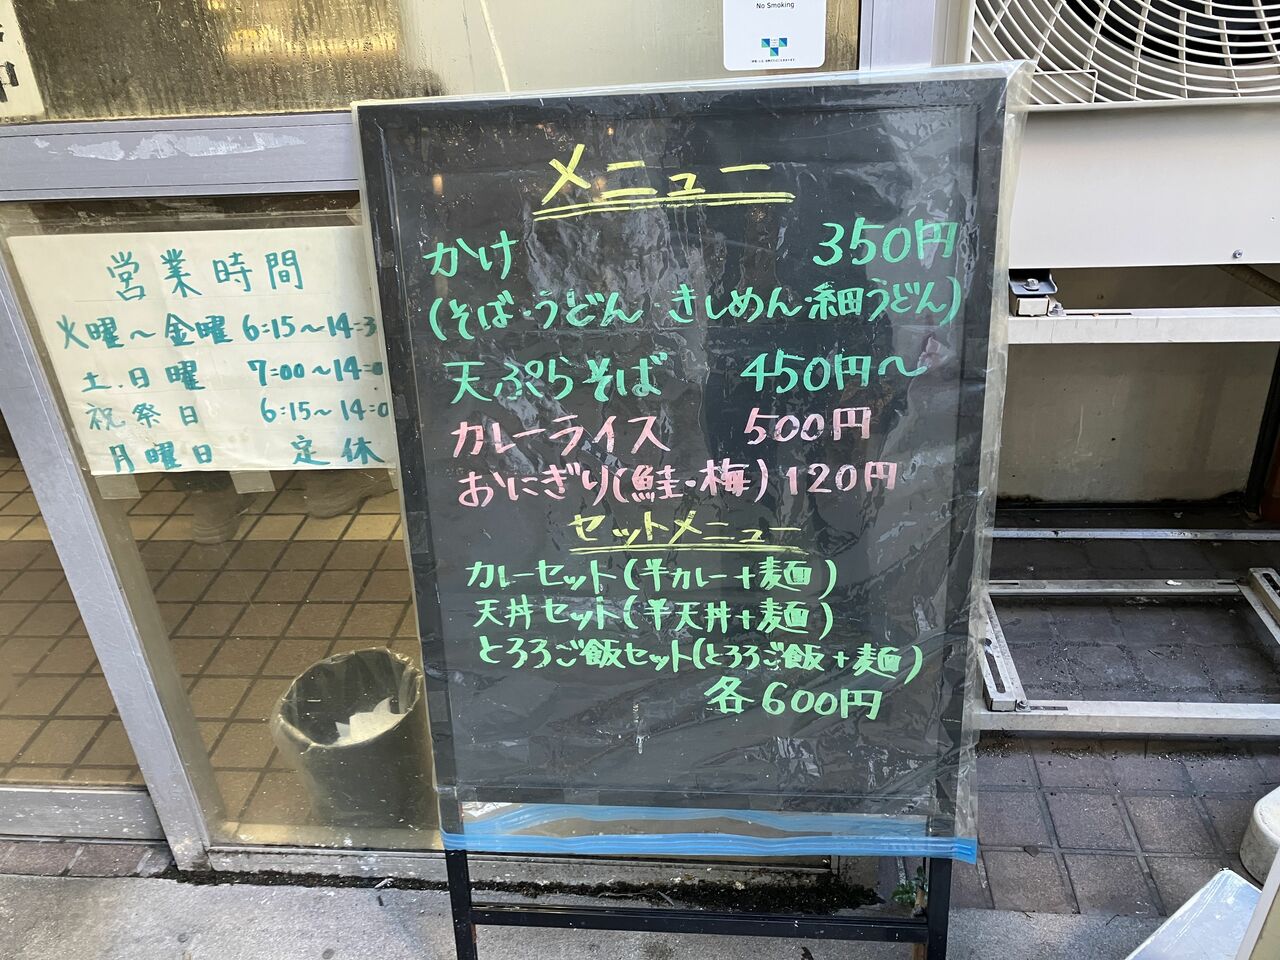 No Smoking
メニュー
かけ 350円
(そば・うどん・きしめん・細うどん)
天ぷらそば 450円〜
カレーライス 500円
おにぎり(鮭・梅) 120円
セットメニュー
カレーセット(半カレー+麺)
天丼セット(半天丼+麺)
とろろご飯セット(とろろご飯+麺)
各600円
営業時間
火曜〜金曜 6:15〜14:3
土.日曜 7:00〜14:0
祝祭日 6:15〜14:0
月曜日 定休